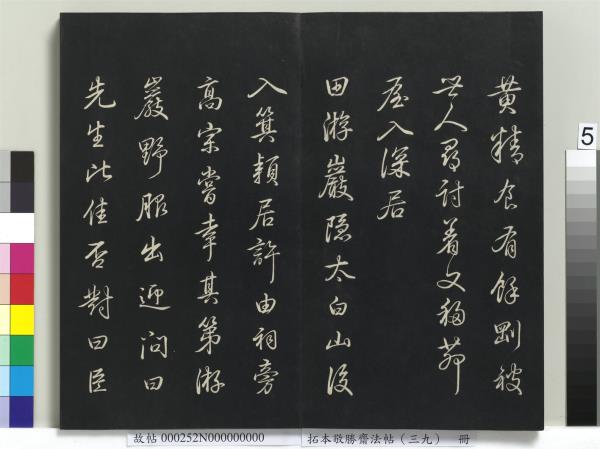 黄精食有餘剛被
世人尋討着又移茆
屋入深居
田游巖隐太白山後
入箕頴居許由祠旁
高宗嘗幸其第游
巖野服出迎问曰
先生比佳否對曰臣
5
故帖 000252N000000000
拓本敬勝齋法帖（三九） 冊